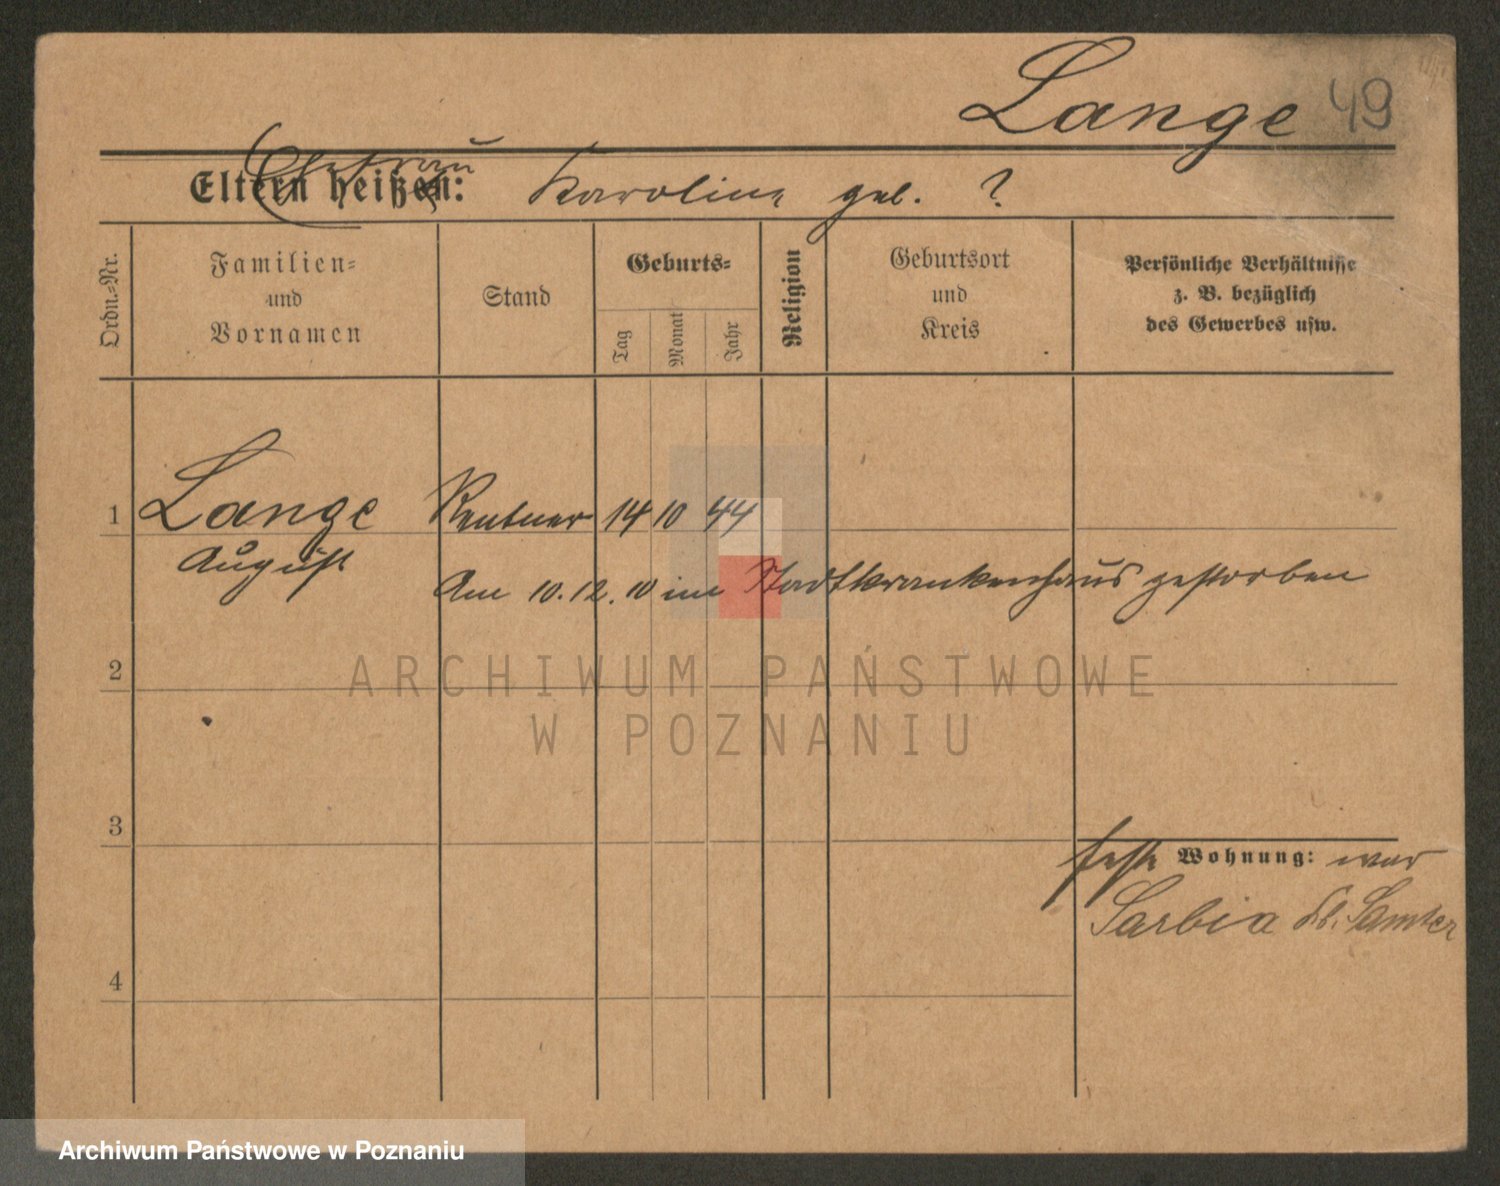 Lange 49
Eltern heißen: Ehefrau Karoline geb. ?
Ordn.-Nr.
Familien-
und
Vornamen
Stand
Geburts-
Tag
Monat
Jahr
Religion
Geburtsort
und
Kreis
Persönliche Verhältnisse
z. B. bezüglich
des Gewerbes usw.
1 Lange Rentner 14 10 44
August
Am 10.12.10 im Stadtkrankenhaus gestorben
2
ARCHIWUM PAŃSTWOWE
W POZNANIU
3
feste Wohnung: war
Sarbia Samter
4
Archiwum Państwowe w Poznaniu